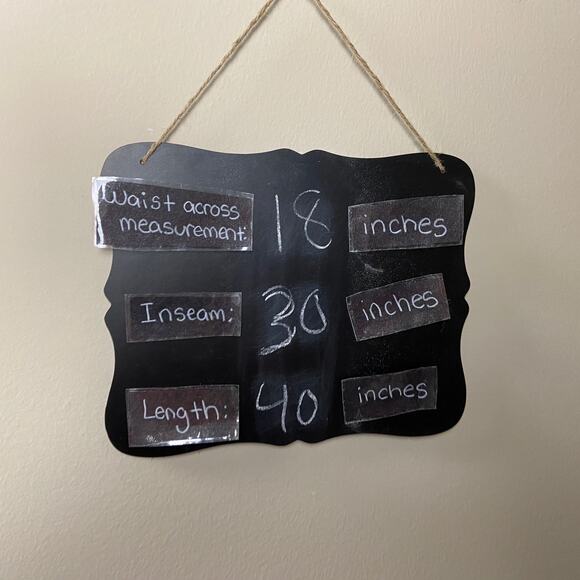 Waist across
measurement: 18 inches
Inseam: 30 inches
Length: 40 inches